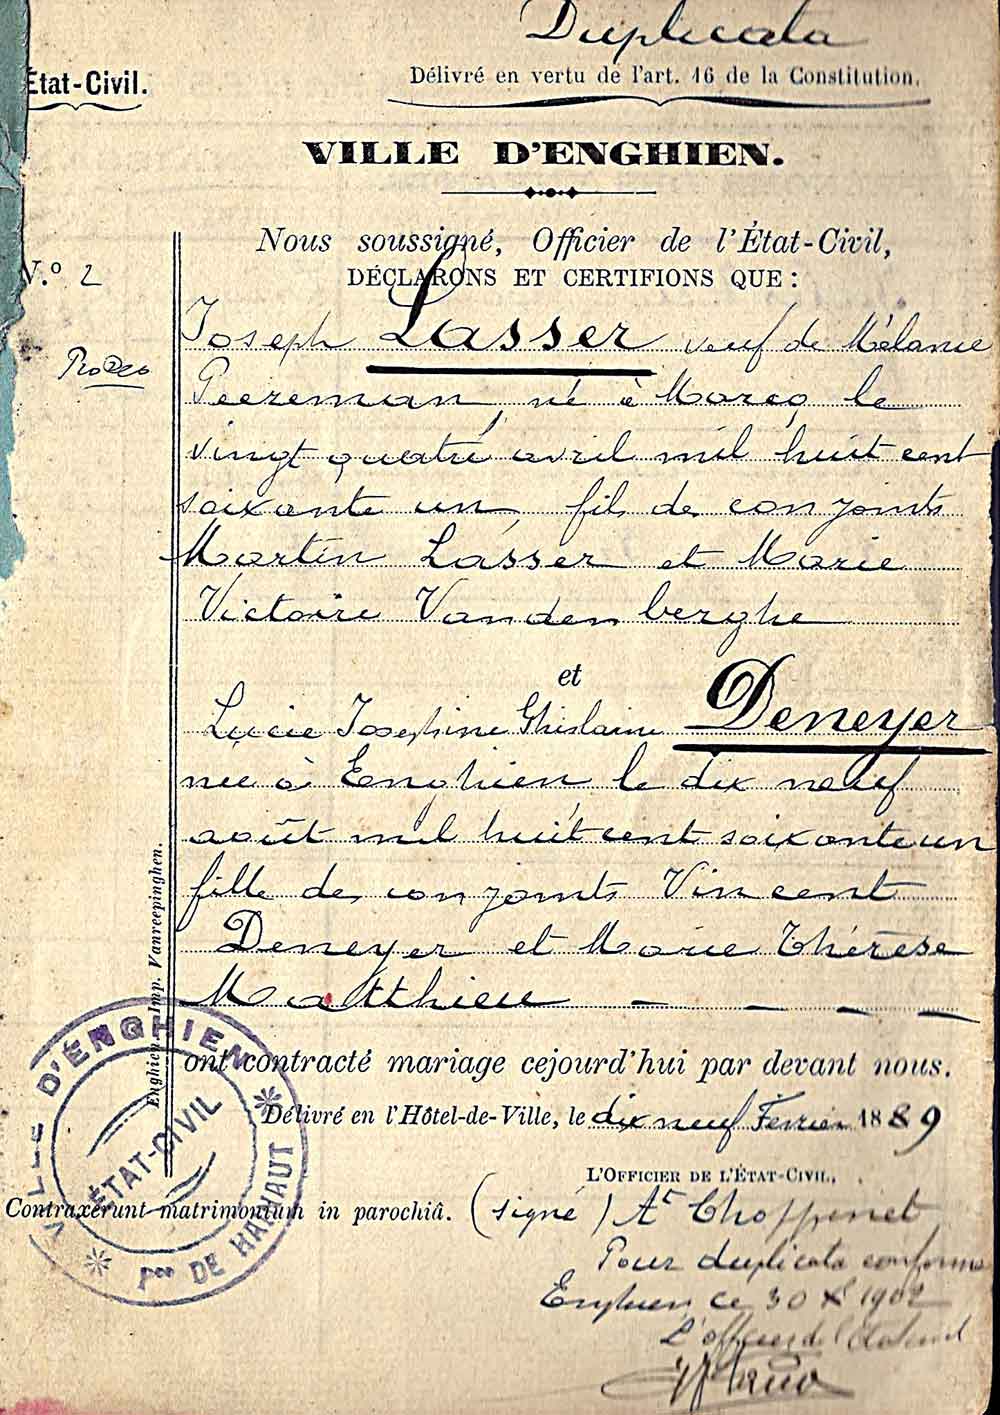 Duplicata
État-Civil.
Délivré en vertu de l'art. 16 de la Constitution.
VILLE D'ENGHIEN.
Nous soussigné, Officier de l'État-Civil,
N.º 2
DÉCLARONS ET CERTIFIONS QUE :
Joseph Lasser veuf de Mélanie
Peereman, né à Marcq le
vingt quatre avril mil huit cent
soixante un, fils de conjoints
Martin Lasser et Marie
Victoire Vandenberghe
et
Lucie Josephine Ghislaine Deneyer
née à Enghien le dix neuf
août mil huit cent soixante un
fille de conjoints Vincent
Deneyer et Marie Thérèse
Matthieu - - - -
ont contracté mariage cejourd'hui par devant nous.
Délivré en l'Hôtel-de-Ville, le dix neuf Février 1889
L'OFFICIER DE L'ÉTAT-CIVIL,
Contraxerunt matrimonium in parochiâ. (signé) At Choppinet
Pour duplicata conforme
Enghien ce 30 Xe 1902
L'officier de l'état civil
Enghien. Imp. Vanreepinghen.
VILLE D'ENGHIEN
ÉTAT-CIVIL
Pce DE HAINAUT